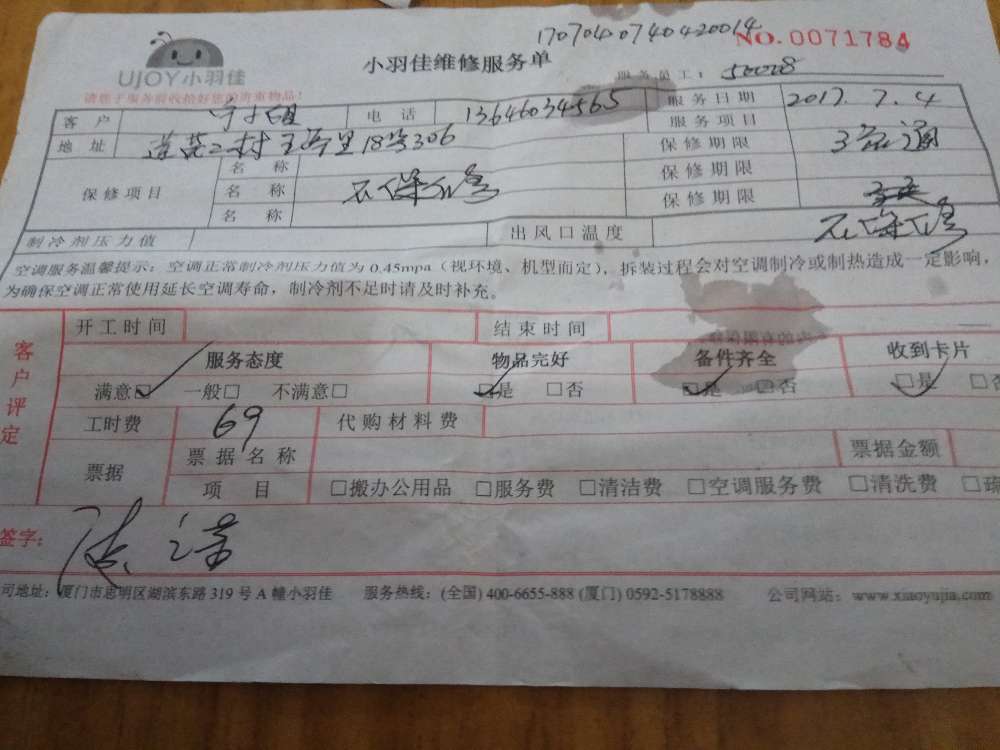 1707040740420014
UJOY小羽佳
小羽佳维修服务单
NO.0071784
服务员工：50028
请您于服务前收拾好您的贵重物品！
客户
电话 13646034565
服务日期 2017.7.4
服务项目
地址 莲花二村 里18号306
保修期限
保修项目
名称
保修期限
名称 不保不修
保修期限
名称
不保不修
制冷剂压力值
出风口温度
空调服务温馨提示：空调正常制冷剂压力值为0.45mpa（视环境、机型而定），拆装过程会对空调制冷或制热造成一定影响，
为确保空调正常使用延长空调寿命，制冷剂不足时请及时补充。
客户评定
开工时间 结束时间
服务态度 物品完好 备件齐全 收到卡片
满意□ 一般□ 不满意□ □是 □否 □是 □否 □是 □否
工时费 69 代购材料费
票据 票据名称 票据金额
项目 □搬办公用品 □服务费 □清洁费 □空调服务费 □清洗费
签字：
司地址：厦门市思明区湖滨东路319号A幢小羽佳 服务热线：(全国) 400-6655-888 (厦门) 0592-5178888 公司网站：www.xiaoyujia.com